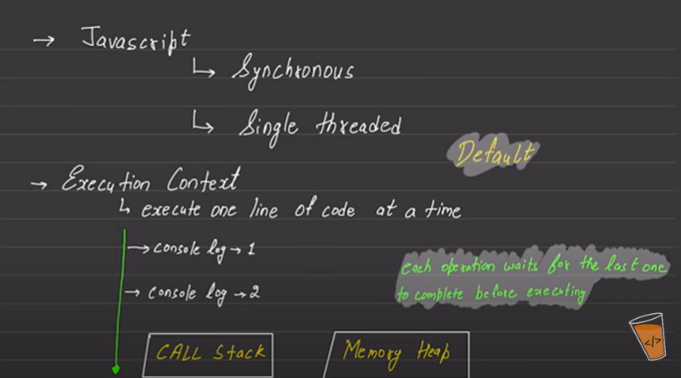 → Javascript
↳ Synchronous
↳ Single threaded
Default
→ Execution Context
↳ execute one line of code at a time
→ console log → 1
→ console log → 2
Each operation waits for the last one
to complete before executing
CALL Stack
Memory Heap
</>